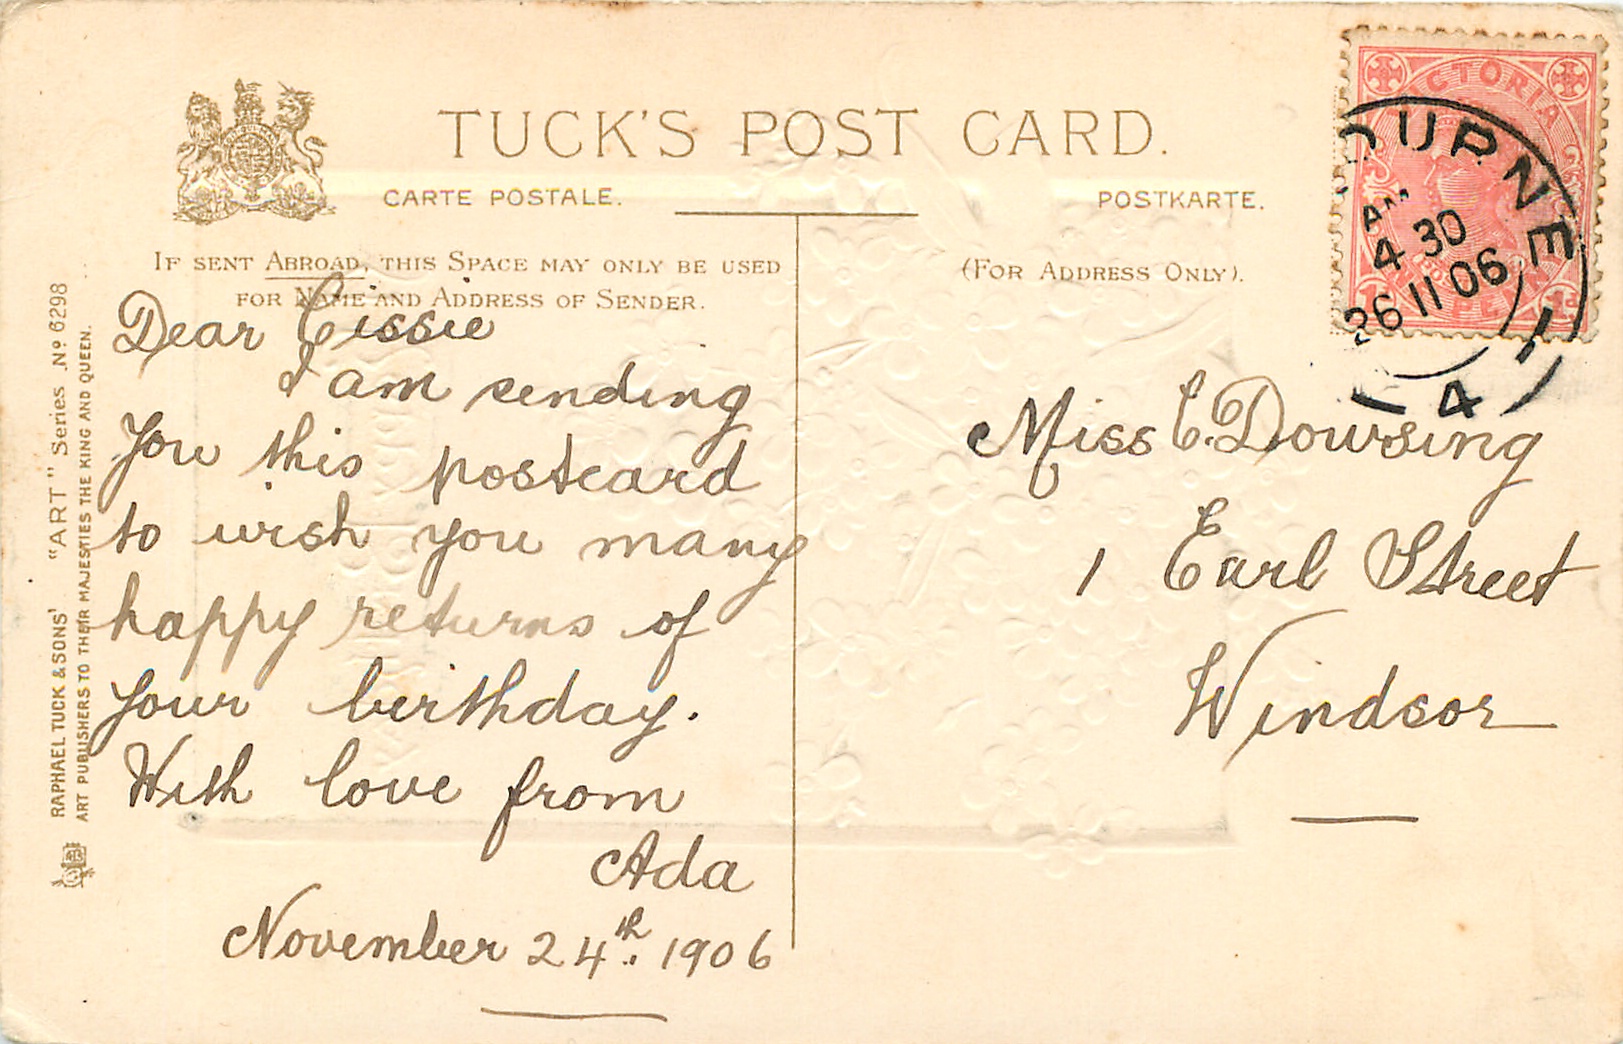 TUCK'S POST CARD.
CARTE POSTALE.
POSTKARTE.
IF SENT ABROAD, THIS SPACE MAY ONLY BE USED
FOR NAME AND ADDRESS OF SENDER.
(FOR ADDRESS ONLY).
Dear Cissie
I am sending
you this postcard
to wish you many
happy returns of
your birthday.
With love from
Ada
November 24th. 1906
Miss C. Dowsing
1 Earl Street
Windsor
RAPHAEL TUCK & SONS' "ART" Series No 6298
ART PUBLISHERS TO THEIR MAJESTIES THE KING AND QUEEN.
VICTORIA
ONE PENNY
OURNE
AM
4 30
26 11 06
4